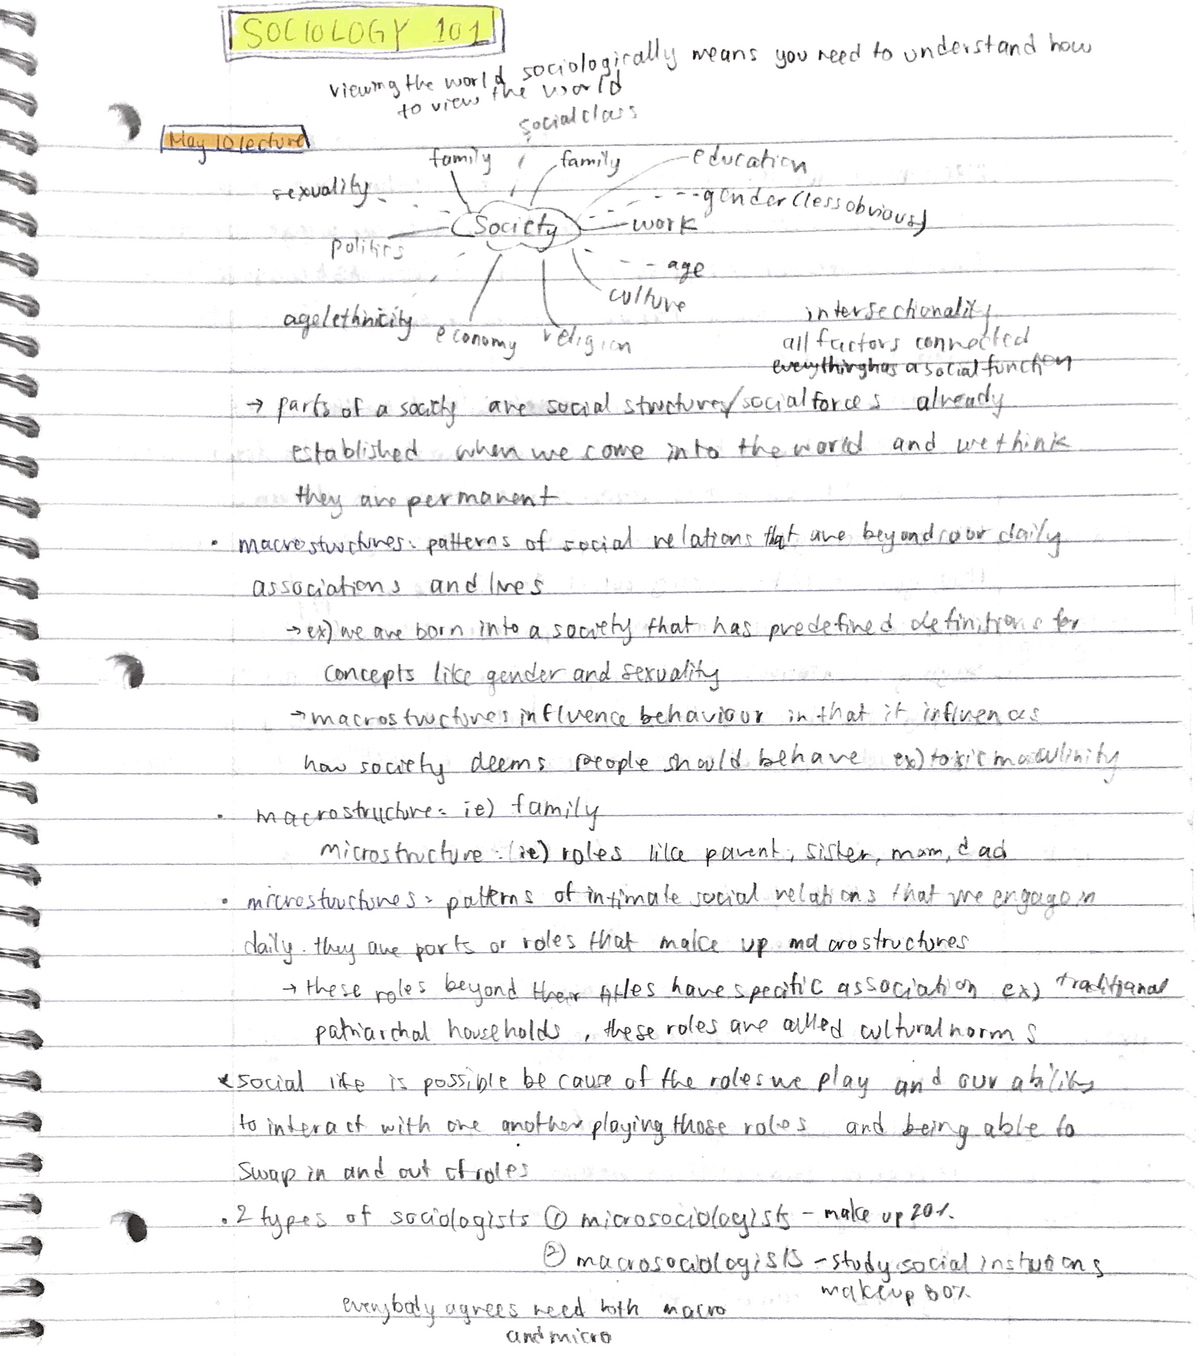 SOCIOLOGY 101
viewing the world sociologically means you need to understand how
to view the world
social class
May 10 lecture
family
family
education
sexuality
gender (less obvious)
Society
work
politics
age
culture
age/ethnicity
economy
religion
intersectionality
all factors connected
everything has a social function
→ parts of a society are social structures/social forces already
established when we come into the world and we think
they are permanent
• macrostructures: patterns of social relations that are beyond our daily
associations and lives
→ ex) we are born into a society that has predefined definitions for
concepts like gender and sexuality
→ macrostructures influence behaviour in that it influences
how society deems people should behave ex) toxic masculinity
• macrostructure: ie) family
microstructure: (ie) roles like parent, sister, mom, dad
• microstructures: patterns of intimate social relations that we engage in
daily. they are parts or roles that make up macrostructures
→ these roles beyond their titles have specific association ex) traditional
patriarchal households, these roles are called cultural norms
* social life is possible because of the roles we play and our ability
to interact with one another playing those roles and being able to
swap in and out of roles
• 2 types of sociologists ① microsociologists - make up 20%
② macrosociologists - study social instutions
make up 80%
everybody agrees need both macro
and micro